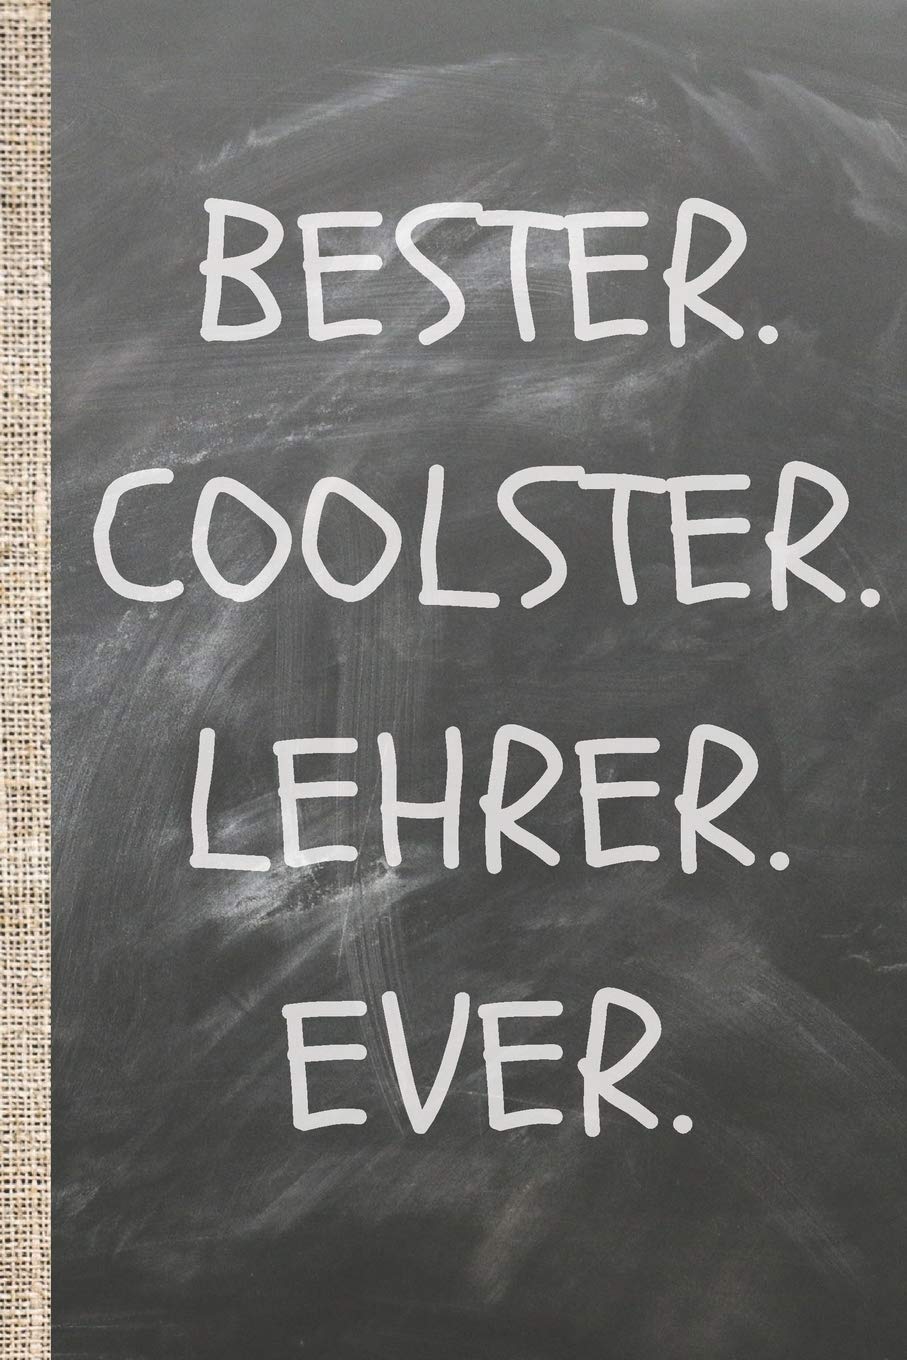 BESTER.
COOLSTER.
LEHRER.
EVER.